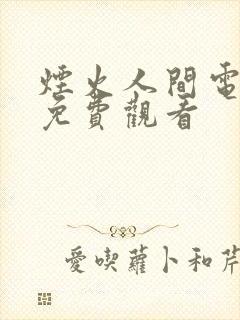 煙火人間電
免費觀看
愛喫蘿卜和芹